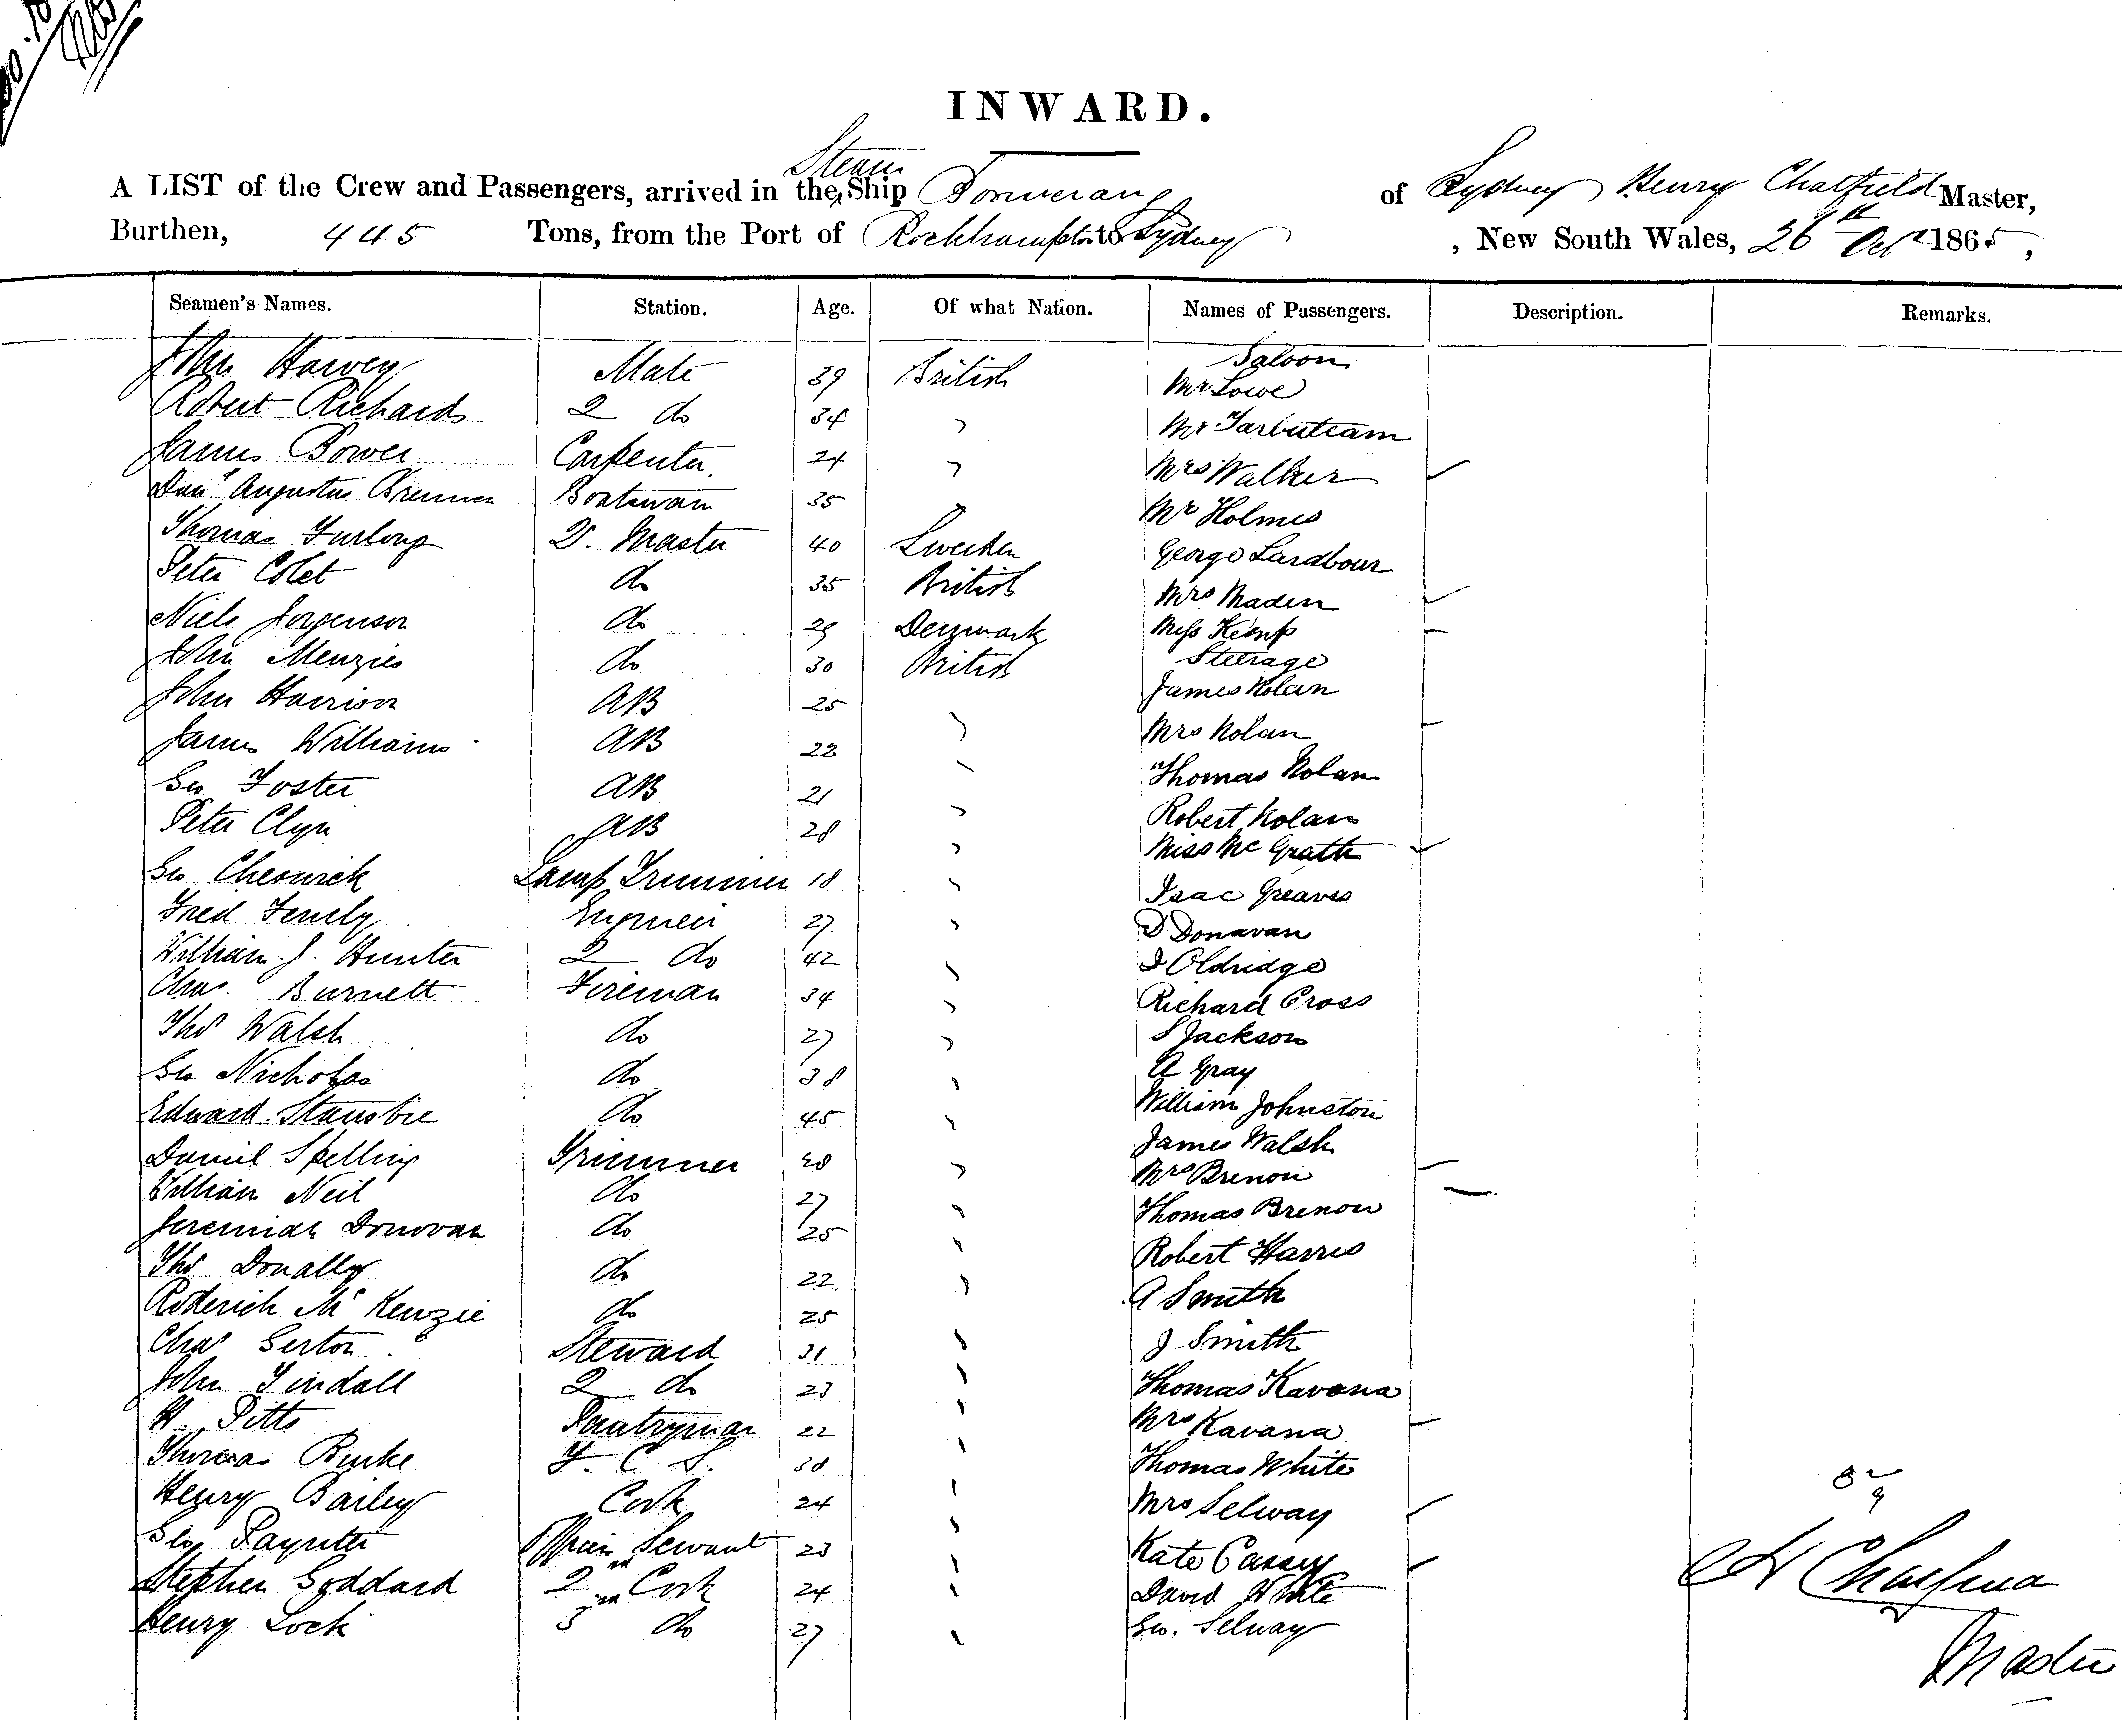 INWARD.
Steam
A LIST of the Crew and Passengers, arrived in the Ship Boomerang of Sydney, Henry Chatfield Master,
Burthen, 445 Tons, from the Port of Rockhampton to Sydney , New South Wales, 26th Octr 1865,
Seamen's Names. Station. Age. Of what Nation. Names of Passengers. Description. Remarks.
Saloon
John Harvey Mate 39 British Mr Lowe
Robert Richards 2 do 34 " Mr
James Bower Carpenter 24 " Mrs Walker
Augustus Boatswain 35 " Mr Holmes
Thomas Furlong Q. Master 40 Sweden George
Peter Colet do 35 British Mrs Maden
Niels Jorgenson do 29 Denmark Miss Kemp
John Menzies do 30 British Steerage
John Harrison AB 25 James Nolan
James Williams AB 22 " Mrs Nolan
Geo Foster AB 21 " Thomas Nolan
Peter Clyn AB 28 " Robert Nolan
Miss McGrath
Geo Cheswick Lamp Trimmer 18 " Isac Greaves
Fred Engineer 27 " D Donavan
William J. Hunter 2 do 42 " J Oldridge
Chas. Burnett Fireman 34 " Richard Cross
Thos Walsh do 27 " S Jackson
Geo Nicholas do 38 " A Gray
Edward do 45 " William Johnston
Daniel Spelling Trimmer 28 " James Walsh
Mrs Brenon
William Neil do 27 " Thomas Brenon
Jeremiah Donovan do 25 " Robert Harris
Thos Donally do 22 " A Smith
Roderick McKenzie do 25
Chas Serton Steward 31 " J Smith
John Tindall 2 do 23 " Thomas Kavana
H. Pitts Pantryman 22 " Mrs Kavana
Thomas Burke F. C. S. 38 " Thomas White
Henry Bailey Cook 24 " Mrs Selway
Geo Paynter Servant 23 " Kate Cassey
Stephen Goddard 2nd Cook 24 " David White
Henry Lock 3rd do 27 " Geo. Selway
H Chatfield
Master